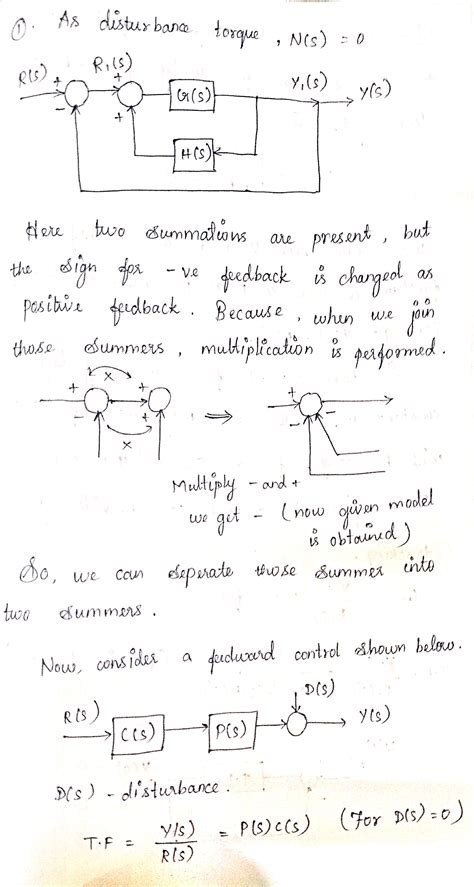 ①. As disturbance torque, N(s) = 0
R(s) + R₁(s) + G(s) Y₁(s) Y(s)
−
+
H(s)
Here two summations are present, but
the sign for -ve feedback is changed as
positive feedback. Because, when we join
those summers, multiplication is performed.
x
+ + ⇒ +
− + − −
x
Multiply - and +
we get - (now given model
is obtained)
So, we can seperate those summer into
two summers.
Now, consider a feedward control shown below.
D(s)
R(s) C(s) P(s) Y(s)
D(s) - disturbance.
T.F = Y(s)/R(s) = P(s)C(s) (For D(s)=0)